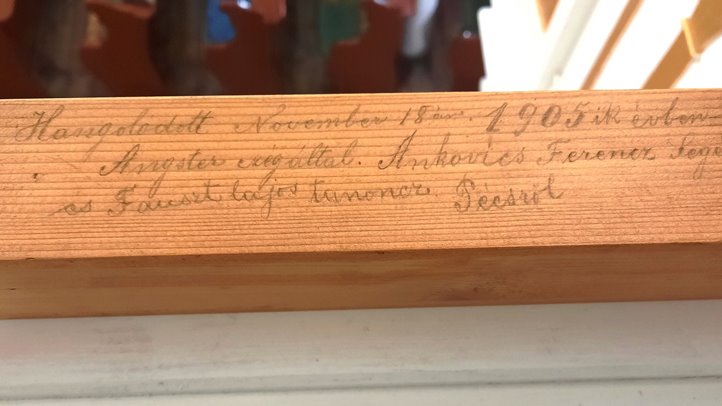 Hangolodott November 18án. 1905ik évben
Angster czég által. Ankovics Ferencz Segé
és Fauszt lajos tanoncz. Pécsről